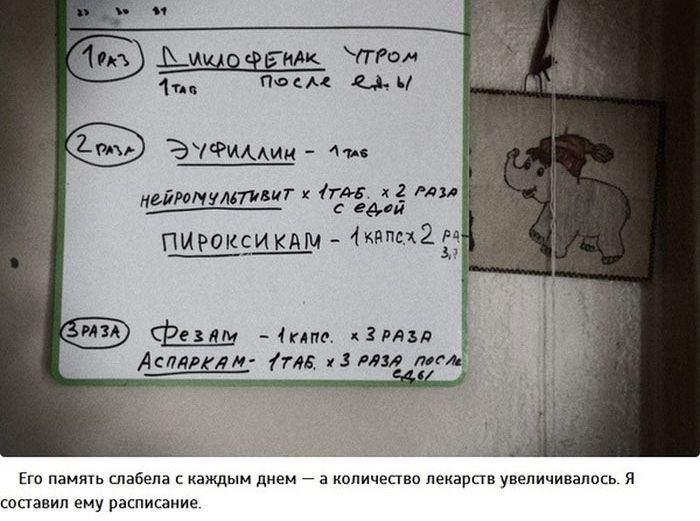 23 30 31
1 РАЗ ДИКЛОФЕНАК УТРОМ
1 ТАБ ПОСЛЕ ЕДЫ
2 РАЗА ЭУФИЛЛИН - 1 ТАБ
НЕЙРОМУЛЬТИВИТ х 1 ТАБ. х 2 РАЗА
С ЕДОЙ
ПИРОКСИКАМ - 1 КАПС. х 2 РА-
ЗА
3 РАЗА ФЕЗАМ - 1 КАПС. х 3 РАЗА
АСПАРКАМ - 1 ТАБ. х 3 РАЗА ПОСЛЕ
ЕДЫ
Его память слабела с каждым днем — а количество лекарств увеличивалось. Я
составил ему расписание.